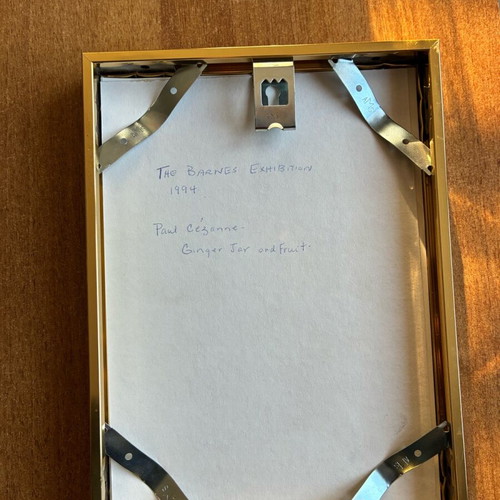 THE BARNES EXHIBITION
1994
Paul Cézanne-
Ginger Jar and Fruit-